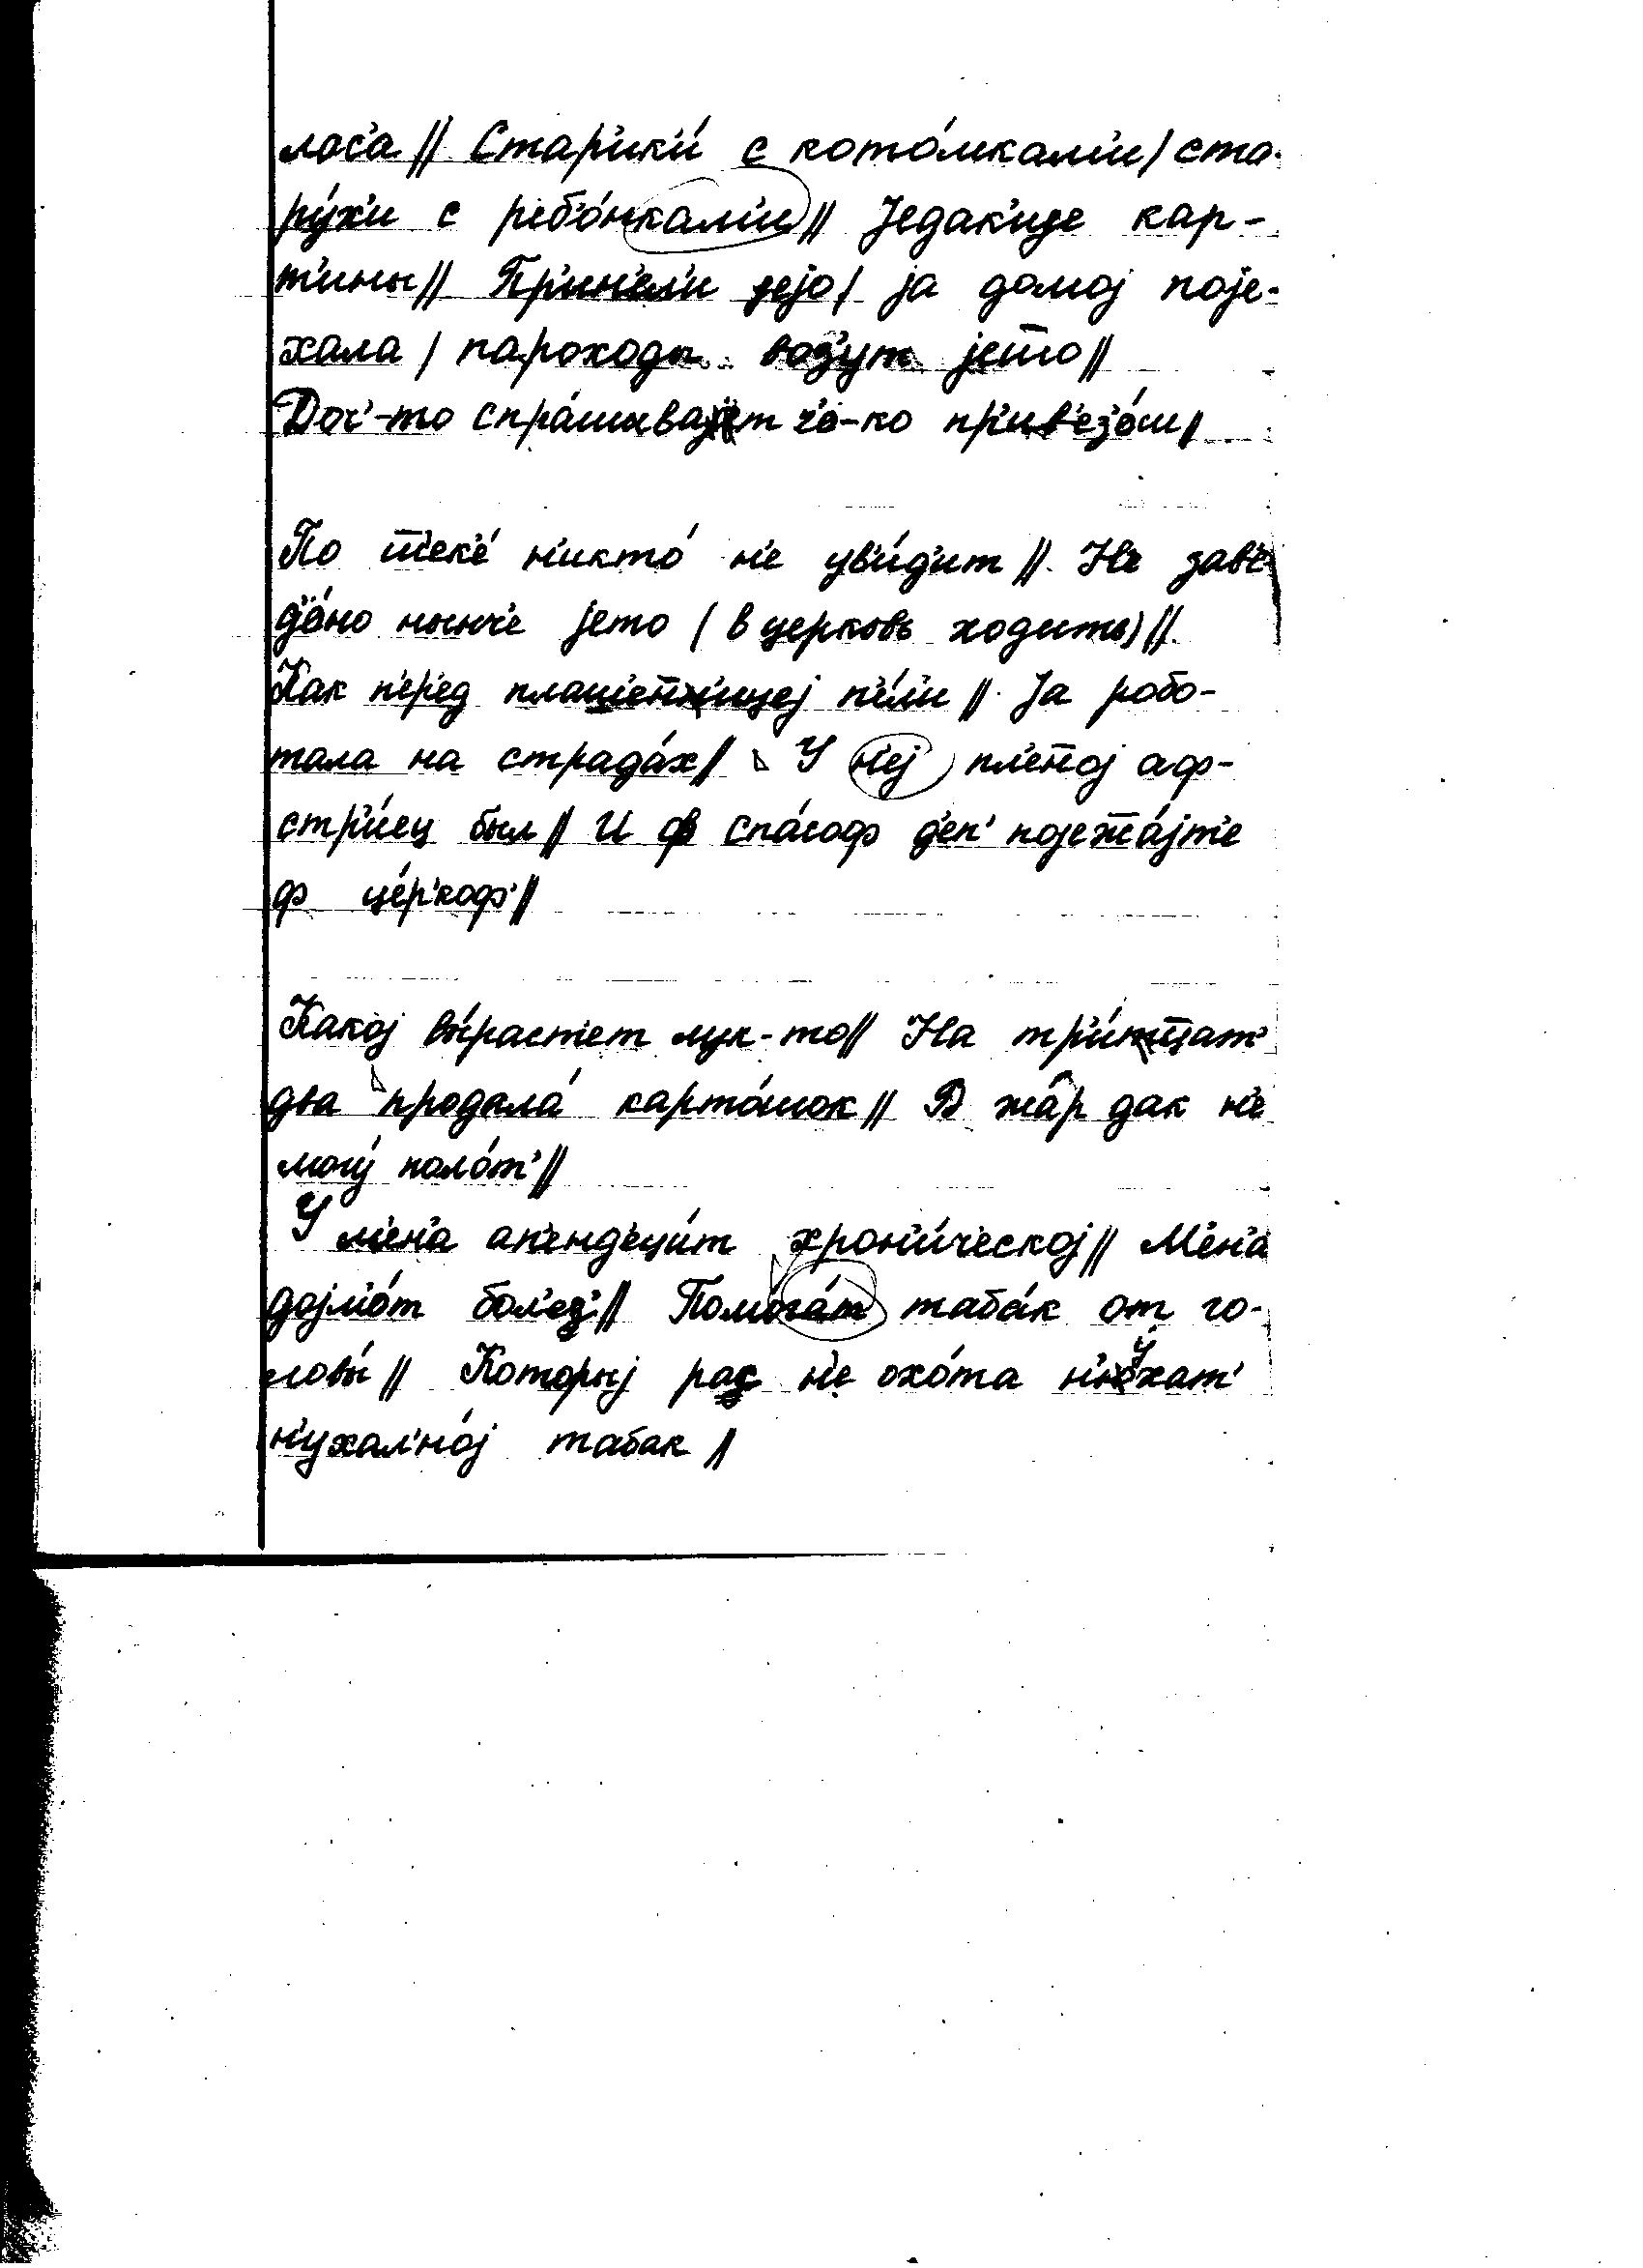 лас'а // Стар'ик'и́ с кото́мкам'и / ста-
ру́х'и с р'еб'о́нкам'и // Једак'ије кар-
т'ины // Пр'ин'ел'и јејо / ја домој поје-
хала / пароходы воз'ут јето //
Доч'-то спра́шывајет ч'о-ко пр'ив'ез'о́ш /
По т'ек'е́ н'икто́ н'е ув'и́д'ит // Не зав'е-
д'о́но нын'ч'е јето (в церковь ходить) //
Как п'ер'ед плащен'ицеј п'е́л'и // Ја робо-
тала на страда́х // У н'еј пл'еној аф-
стр'и́ец был // И в спа́соф д'ен' појежа́јт'е
ф це́р'коф' //
Какој вы́раст'ет лук-то // На тр'и́цат'
два продала́ карто́шок // В жа́р дак н'е
могу́ поло́т' //
У м'ен'а ап'енд'еци́т хрон'и́ческој // М'ен'а
дојм'о́т бол'ез' // Помога́т таба́к от го-
ловы́ // Которыј раз н'е охо́та н'у́хат'
н'ухал'но́ј табак //